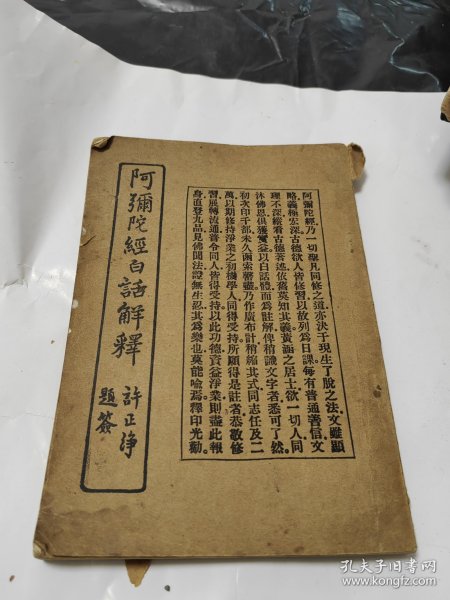 阿彌陀經乃一切聖凡同修之道亦決于現生了脫之法。文雖顯
略義極宏深古德欲人皆修習以故列為日課每有普通善信文
理不深縱看古德著述依舊莫知其義黃涵之居士欲一切人同
沐佛恩俱獲實益以白話體而為註解俾稍識文字者悉可了然。
初次印千部未久函索罄盡乃作廣布計稍縮其式同志任及二
萬以期修持淨業之初機學人同得受持所願得是註者恭敬修
習展轉流通普令同人皆得受持以此功德資益淨業則盡此報
身直登九品見佛聞法證無生忍其為樂也莫能喻焉釋印光勸
阿彌陀經白話解釋
許正淨
題簽
孔夫子旧书网
www.kongfz.com